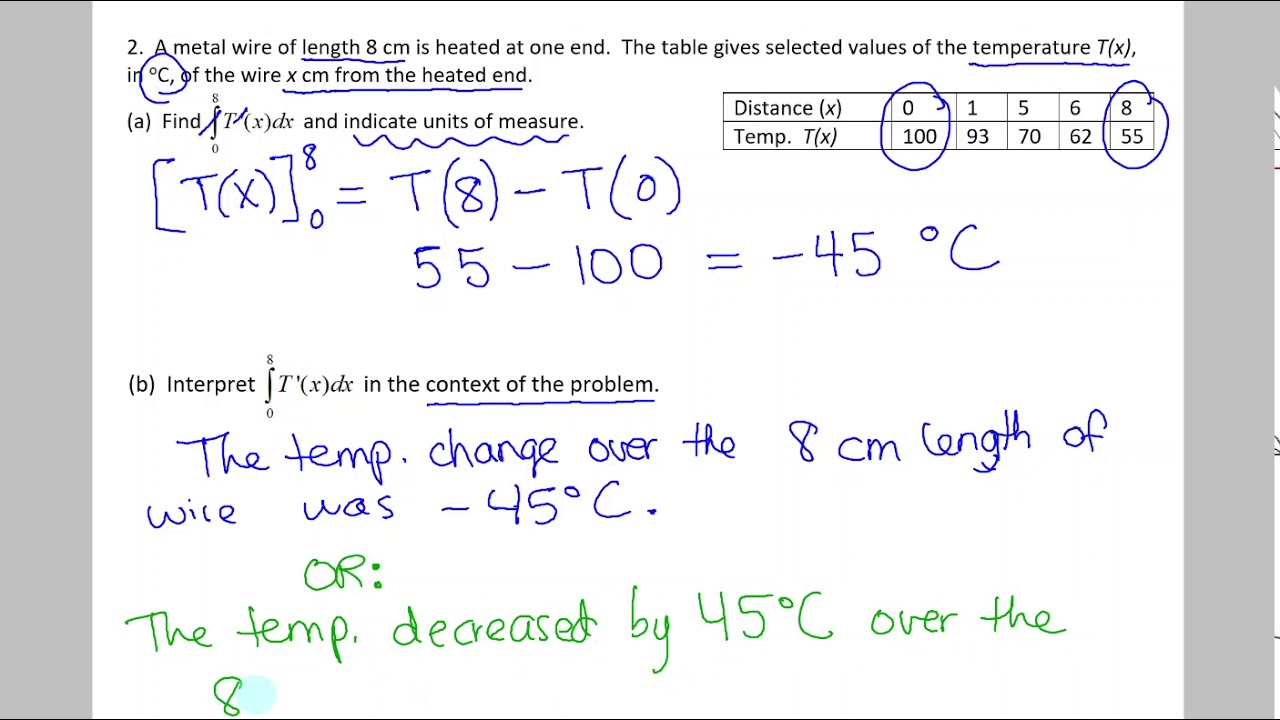 2. A metal wire of length 8 cm is heated at one end. The table gives selected values of the temperature T(x),
in °C, of the wire x cm from the heated end.
(a) Find ∫₀⁸ T'(x)dx and indicate units of measure.
Distance (x) 0 1 5 6 8
Temp. T(x) 100 93 70 62 55
[T(x)]₀⁸ = T(8) - T(0)
55 - 100 = -45 °C
(b) Interpret ∫₀⁸ T'(x)dx in the context of the problem.
The temp. change over the 8 cm length of
wire was -45°C.
OR:
The temp. decreased by 45°C over the
8